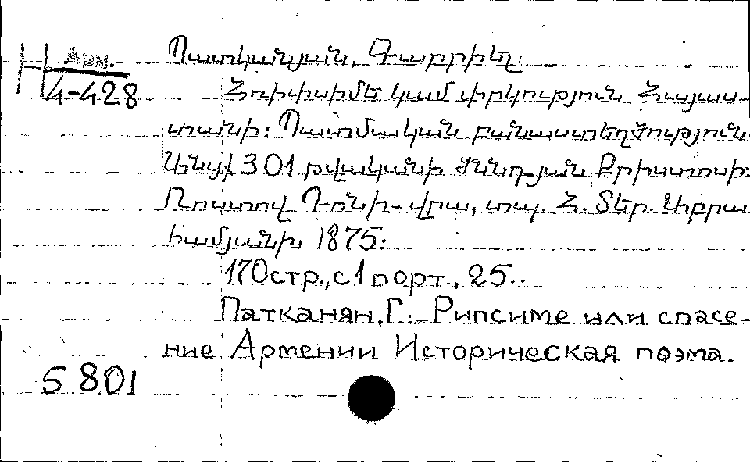 Арм.
Н 4-428
Պատկանյան, Գաբրիել
Հռիփսիմե կամ փրկություն Հայաս-
տանի: Պատմական բանաստեղծություն
301 թվականի ծննդյան Քրիստոսի:
Ռոստով Դոնի-վրա, տպ. Հ. Տեր Աբրա
համյանի, 1875:
170стр., с 1 порт., 25..
Патканян, Г.: Рипсиме или спасе-
ние Армении Историческая поэма.
5801